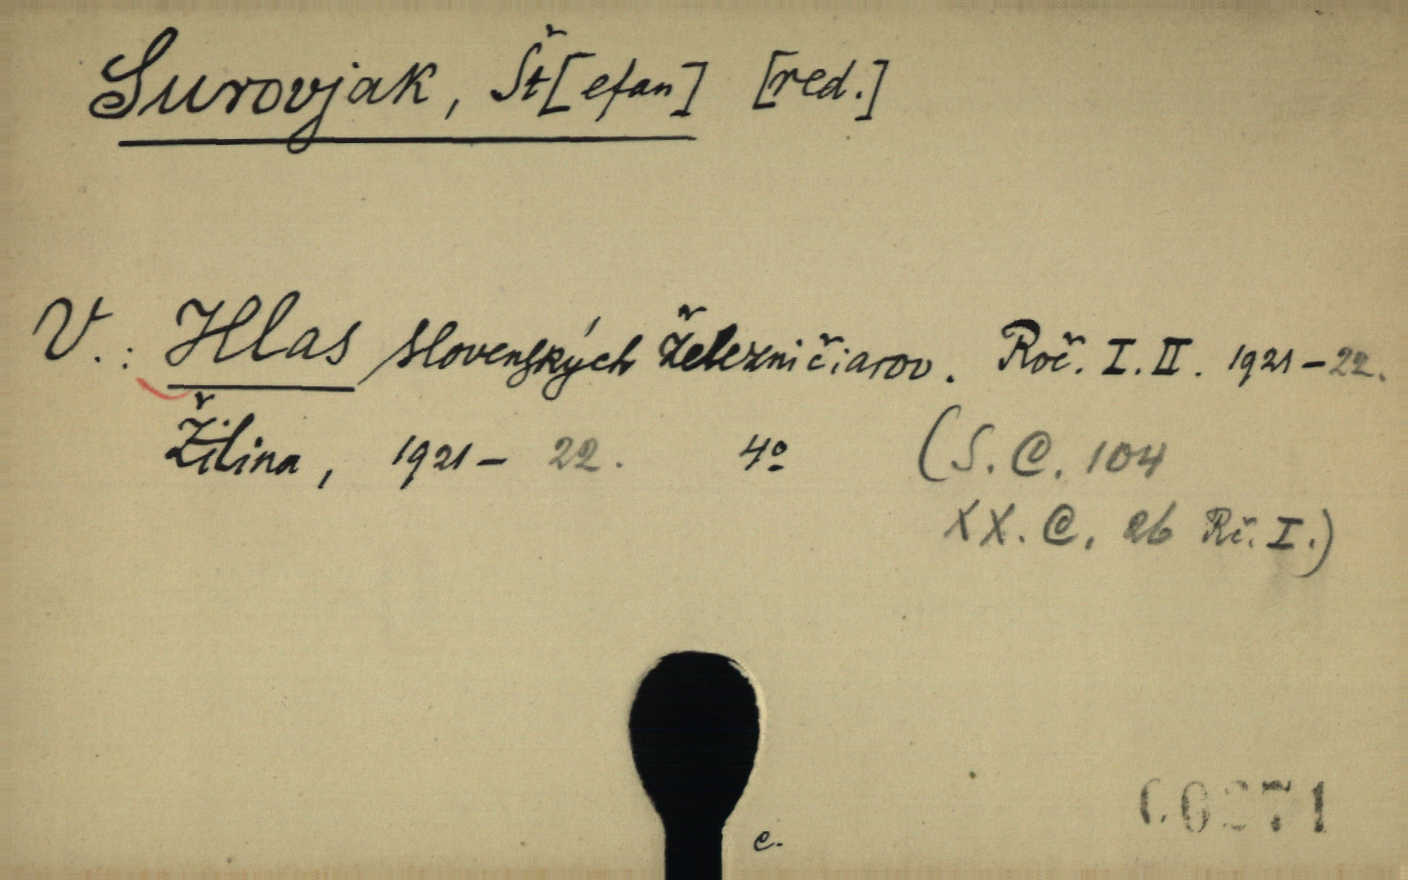 Surovjak, Št[efan] [red.]
V.: Hlas slovenských železničiarov. Roč. I. II. 1921-22.
Žilina, 1921- 22. 4º (S. C. 104
XX. C. 26 Rč. I.)
c.